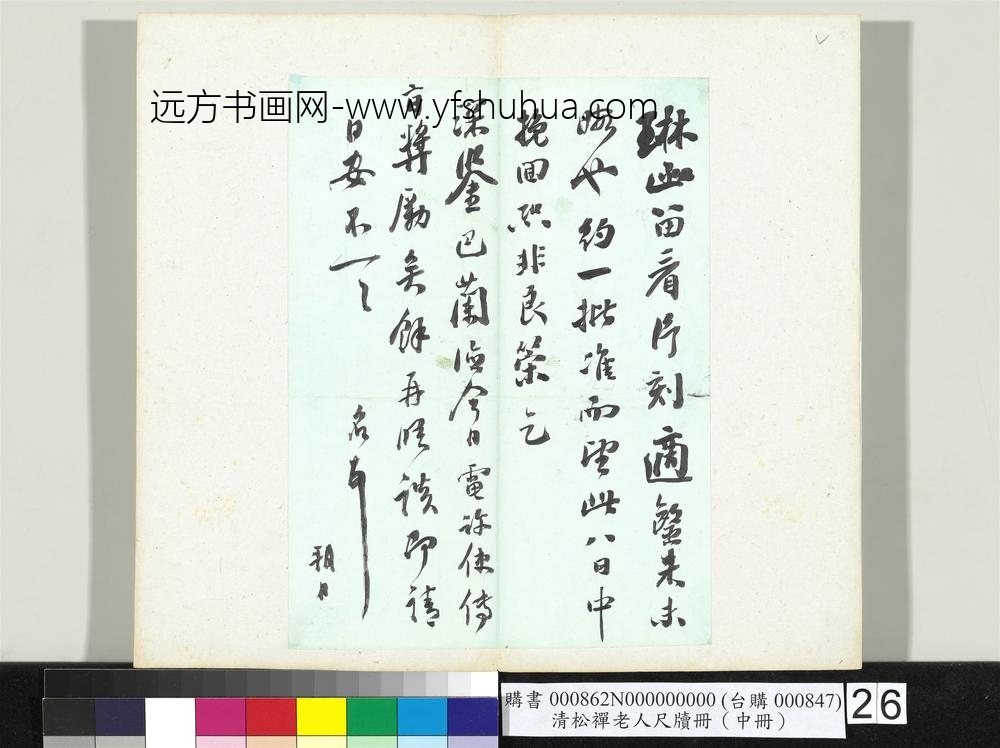 远方书画网-www.yfshuhua.com
琳函留看片刻適鑒來未
晤也約一批准而望此八日中
挽回恐非良策乞
深鑒巴蘭德今日電許使傳
旨獎勵矣餘再晤談即請
日安不一一
名
朔日
購書 000862N000000000 (台購 000847)
清松禪老人尺牘冊（中冊）
26